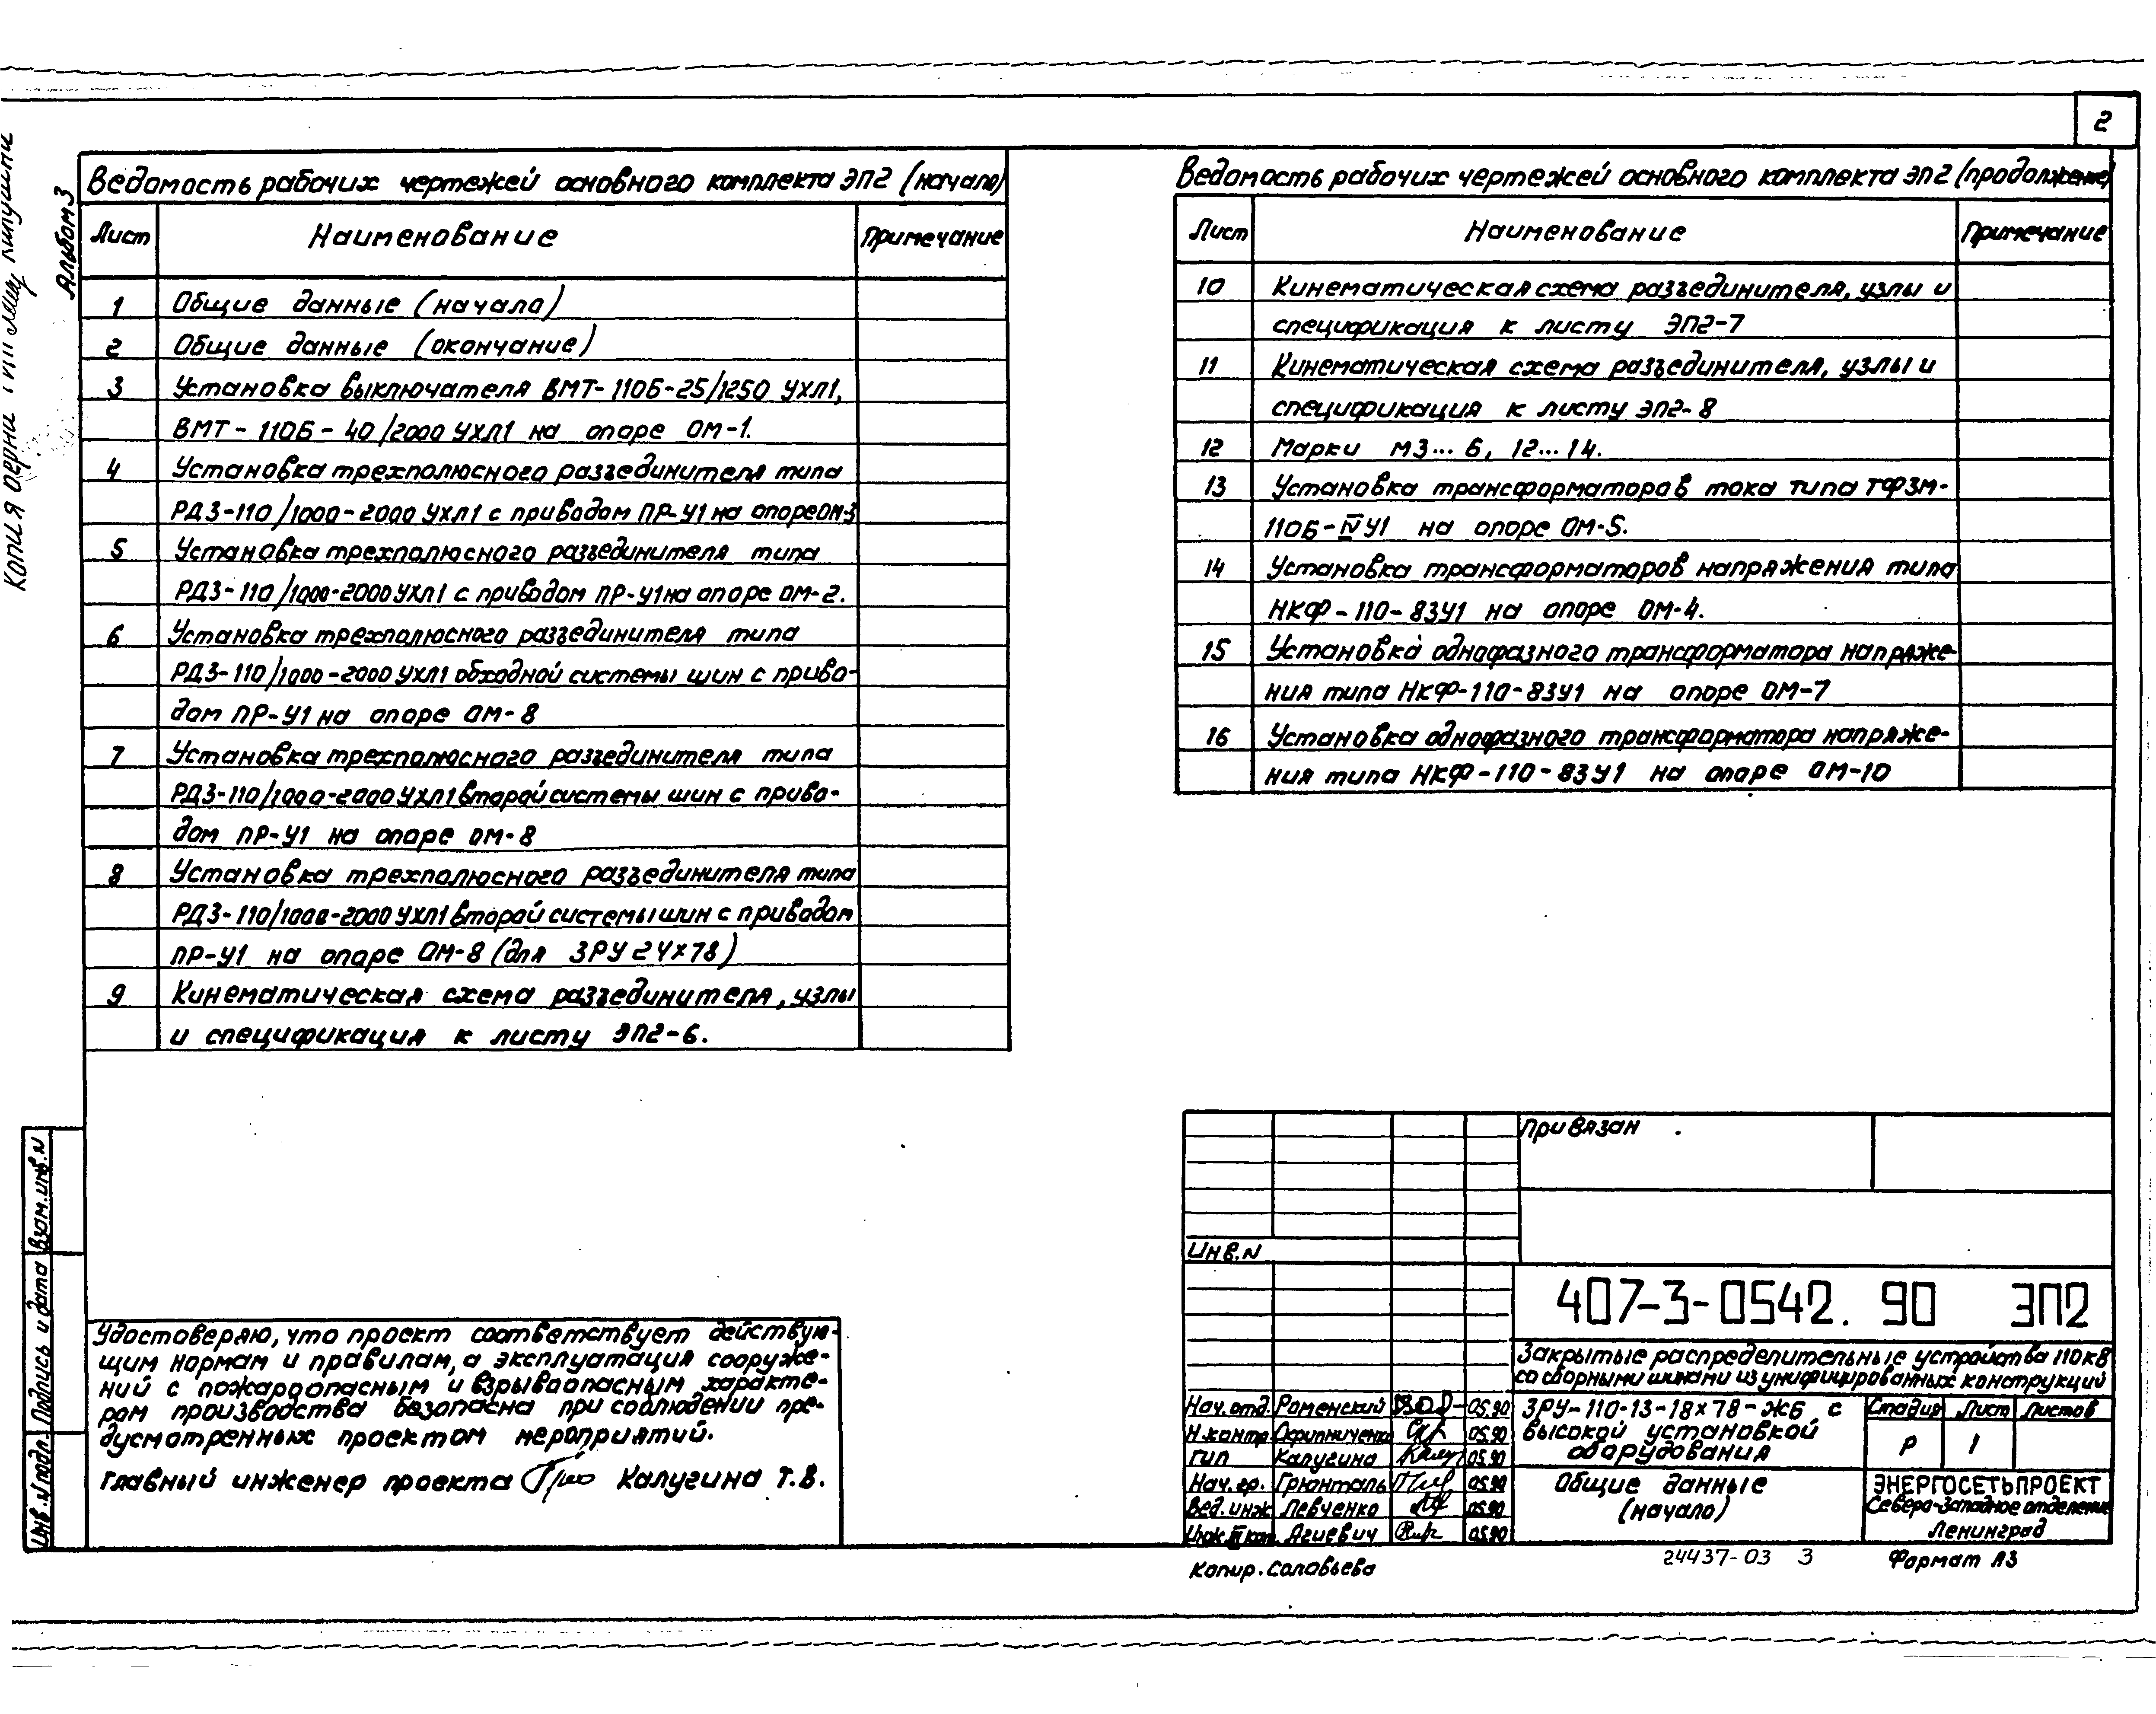 2
Альбом 3
Ведомость рабочих чертежей основного комплекта ЭП2 (начало)
Лист Наименование Примечание
1 Общие данные (начало)
2 Общие данные (окончание)
3 Установка выключателя ВМТ-110Б-25/1250 УХЛ1,
ВМТ-110Б-40/2000 УХЛ1 на опоре ОМ-1.
4 Установка трехполюсного разъединителя типа
РДЗ-110/1000-2000 УХЛ1 с приводом ПР-У1 на опоре ОМ-3
5 Установка трехполюсного разъединителя типа
РДЗ-110/1000-2000 УХЛ1 с приводом ПР-У1 на опоре ОМ-2.
6 Установка трехполюсного разъединителя типа
РДЗ-110/1000-2000 УХЛ1 обходной системы шин с приво-
дом ПР-У1 на опоре ОМ-8
7 Установка трехполюсного разъединителя типа
РДЗ-110/1000-2000 УХЛ1 второй системы шин с приво-
дом ПР-У1 на опоре ОМ-8
8 Установка трехполюсного разъединителя типа
РДЗ-110/1000-2000 УХЛ1 второй системы шин с приводом
ПР-У1 на опоре ОМ-8 (для ЗРУ 24х78)
9 Кинематическая схема разъединителя, узлы
и спецификация к листу ЭП2-6.
Ведомость рабочих чертежей основного комплекта ЭП2 (продолжение)
Лист Наименование Примечание
10 Кинематическая схема разъединителя, узлы и
спецификация к листу ЭП2-7
11 Кинематическая схема разъединителя, узлы и
спецификация к листу ЭП2-8
12 Марки М3...6, 12...14.
13 Установка трансформаторов тока типа ТФЗМ-
110Б-IV У1 на опоре ОМ-5.
14 Установка трансформаторов напряжения типа
НКФ-110-83У1 на опоре ОМ-4.
15 Установка однофазного трансформатора напряже-
ния типа НКФ-110-83У1 на опоре ОМ-7
16 Установка однофазного трансформатора напряже-
ния типа НКФ-110-83У1 на опоре ОМ-10
Удостоверяю, что проект соответствует действую-
щим нормам и правилам, а эксплуатация сооруже-
ний с пожароопасным и взрывоопасным характе-
ром производства безопасна при соблюдении пре-
дусмотренных проектом мероприятий.
Главный инженер проекта Калугина Т.В.
Взам. инв. N
Подпись и дата
Инв. N подл.
Привязан
Инв. N
407-3-0542.90 ЭП2
Закрытые распределительные устройства 110кВ
со сборными шинами из унифицированных конструкций
Нач. отд. Роменский 05.90
Н. контр. Скрипниченко 05.90
ГИП Калугина 05.90
Нач. гр. Грюнталь 05.90
Вед. инж Левченко 05.90
Инж. III кат. Агиевич 05.90
ЗРУ-110-13-18х78-ЖБ с
высокой установкой
оборудования
Стадия Лист Листов
Р 1
Общие данные
(начало)
ЭНЕРГОСЕТЬПРОЕКТ
Северо-Западное отделение
Ленинград
Копир. Соловьева
24437-03 3
Формат А3
Копия верна